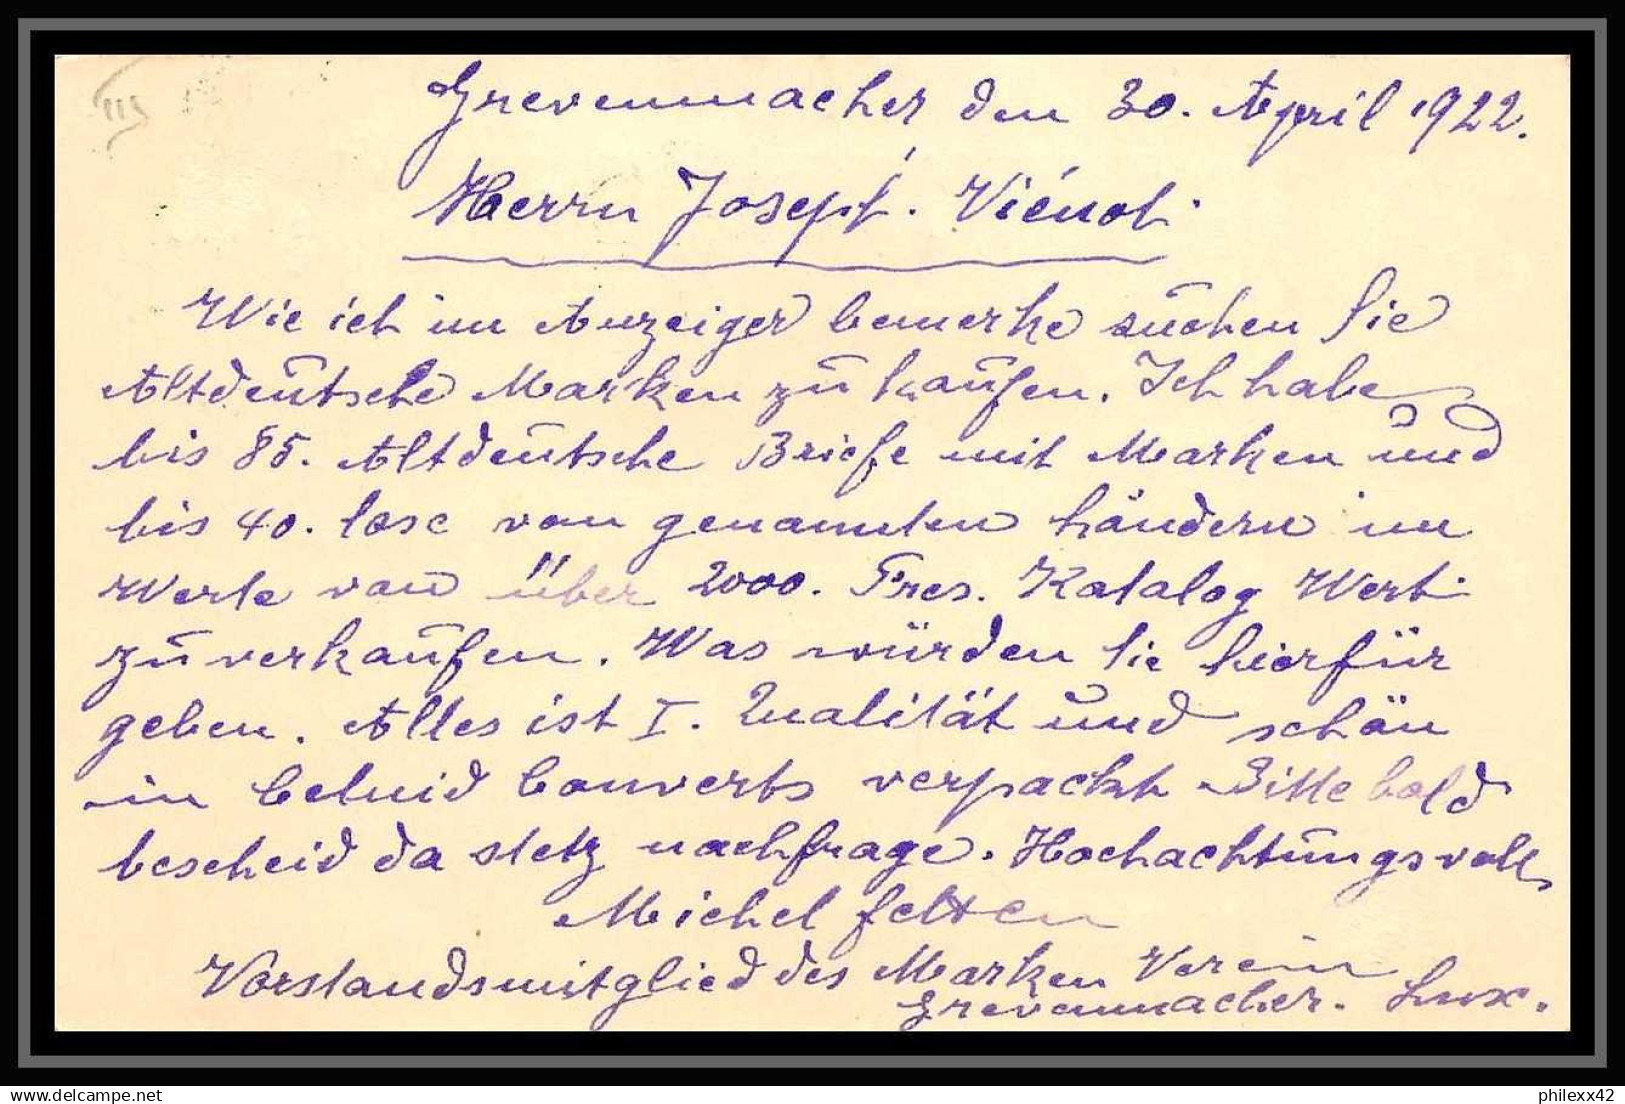 Grevenmacher den 30. April 1922.
Herrn Joseph. Viénot.
Wie ich im Anzeiger bemerke suchen Sie
Altdeutsche Marken zu kaufen. Ich habe
bis 85. Altdeutsche Briefe mit Marken und
bis 40. lose von genannten Ländern im
Werte von über 2000. Frcs. Katalog Wert
zu verkaufen. Was würden Sie hierfür
geben. Alles ist I. Qualität und schön
in Couverts verpackt Bitte bald
bescheid da stetz nachfrage. Hochachtungsvoll
Michel Felten
Vorstandsmitglied des Marken Verein
Grevenmacher. Lux.
philexx42